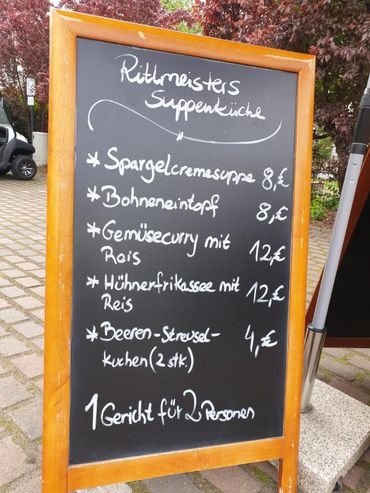 Rittmeisters
Suppenküche
* Spargelcremesuppe 8,€
* Bohneneintopf 8,€
* Gemüsecurry mit
Reis 12,€
* Hühnerfrikassee mit
Reis 12,€
* Beeren-Streusel-
kuchen (2 stk.) 4,€
1 Gericht für 2 Personen